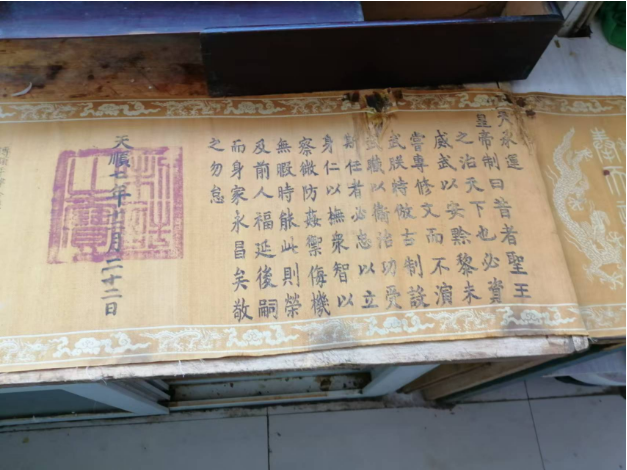 奉天
天承運
皇帝制曰昔者聖王
之治天下也必
威武以安黔黎未
嘗專修文而不演
武朕特倣古制設
職以衛治功受
任者必忠以立
身仁以撫衆智以
察微防姦禦侮機
無暇時能此則榮
及前人福延後嗣
而身家永昌矣敬
之勿怠
天順七年月二十二日
之寶